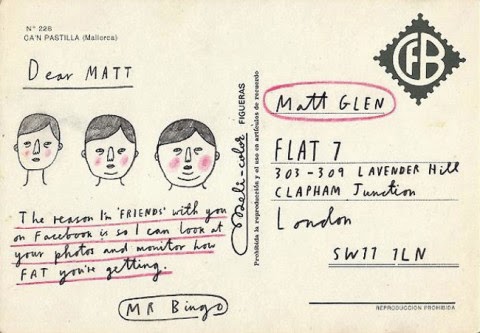 Nº 226
CA'N PASTILLA (Mallorca)
Dear MATT
The reason I'm 'FRIENDS' with you
on Facebook is so I can look at
your photos and monitor how
FAT you're getting.
MR Bingo
Deli-color FIGUERAS
Prohibida la reproducción y el uso en artículos de recuerdo
CFB
Matt GLEN
FLAT 7
303-309 LAVENDER Hill
CLAPHAM Junction
London
SW11 1LN
REPRODUCCION PROHIBIDA